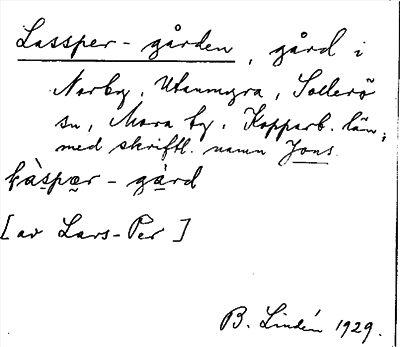 Lassper-gården, gård i
Norby, Utanmyra, Sollerö
sn, Mora tg, Kopparb. län,
med skriftl. namn Jons.
làspær-gàrd
[av Lars-Per]
B. Lindén 1929.